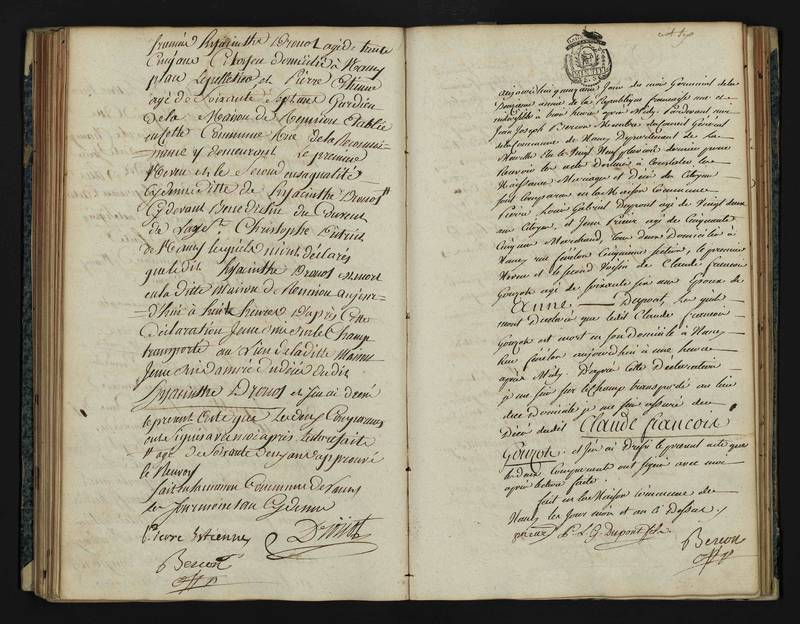 francois hyacinthe Drouot agé de trente
cinq ans Citoyen domicilié à Nancy
place Lepelletier et Pierre Etienne
agé de Soixante Sept ans Gardien
de la Maison de Réunion Etablie
en cette Commune Rue de la
y demeurant le premier
Neveu et le Second en sa qualité
Cydenne ditte de hyacinthe Drouot
Cydevant Benedictin du Couvent
de District
de Nancy lesquels m'ont déclarés
que ledit hyacinthe Drouot est mort
en la ditte Maison de Réunion aujour
-d'hui à huite heures D'après Cette
Déclaration Jeme suis sur le Champ
transporté au Lieu de la ditte Maison
Jeme suis assuré du décès dudit
hyacinthe Drouot et j'en ai dressé
le présent Acte que les deux Comparans
ont signé avec moi après lecture faite
agé de soixante deux ans approuvé
le Renvoy
fait en la maison Commune de Nancy
les Jour mois et an Cydevant
Pierre Etienne Drouot
Bercon
aujourd'hui quinzieme Jour du mois Germinal de la
Deuxieme année de la République française une et
indivisible à trois heures après Midy. Pardevant moi
Jean Joseph Bercon Membre du Conseil Général
de la Commune de Nancy Departement de la
Meurthe Elu le Vingt Neuf pluviose dernier pour
recevoir les actes destinés à Constater les
Naissances Mariages et Décès des Citoyens
sont Comparus en la Maison Commune
Pierre Louis Gabriel Dupont agé de Vingt deux
ans Citoyen, et Jean Prieur agé de Cinquante
Cinq ans Marchand, tous deux Domiciliés à
Nancy rue fénélon Cinquieme section, le premier
Neveu et le Second Voisin de Claude francois
Gouzot agé de soixante six ans Epoux de
Anne Dupont, Lesquels
m'ont Déclaré que ledit Claude francois
Gouzot est mort en son domicile à Nancy
Rue fénélon aujourd'hui à une heure
après Midy. D'après cette Déclaration
je me suis sur le champ transporté au lieu
de ce domicile je me suis assuré du
Décès dudit Claude francois
Gouzot. et j'en ai dressé le présent acte que
les deux Comparants ont signé avec moi
après lecture faite.
fait en la Maison Commune de
Nancy les Jour mois et an ci dessus.
prieur P. L. G. Dupont fils
Bercon